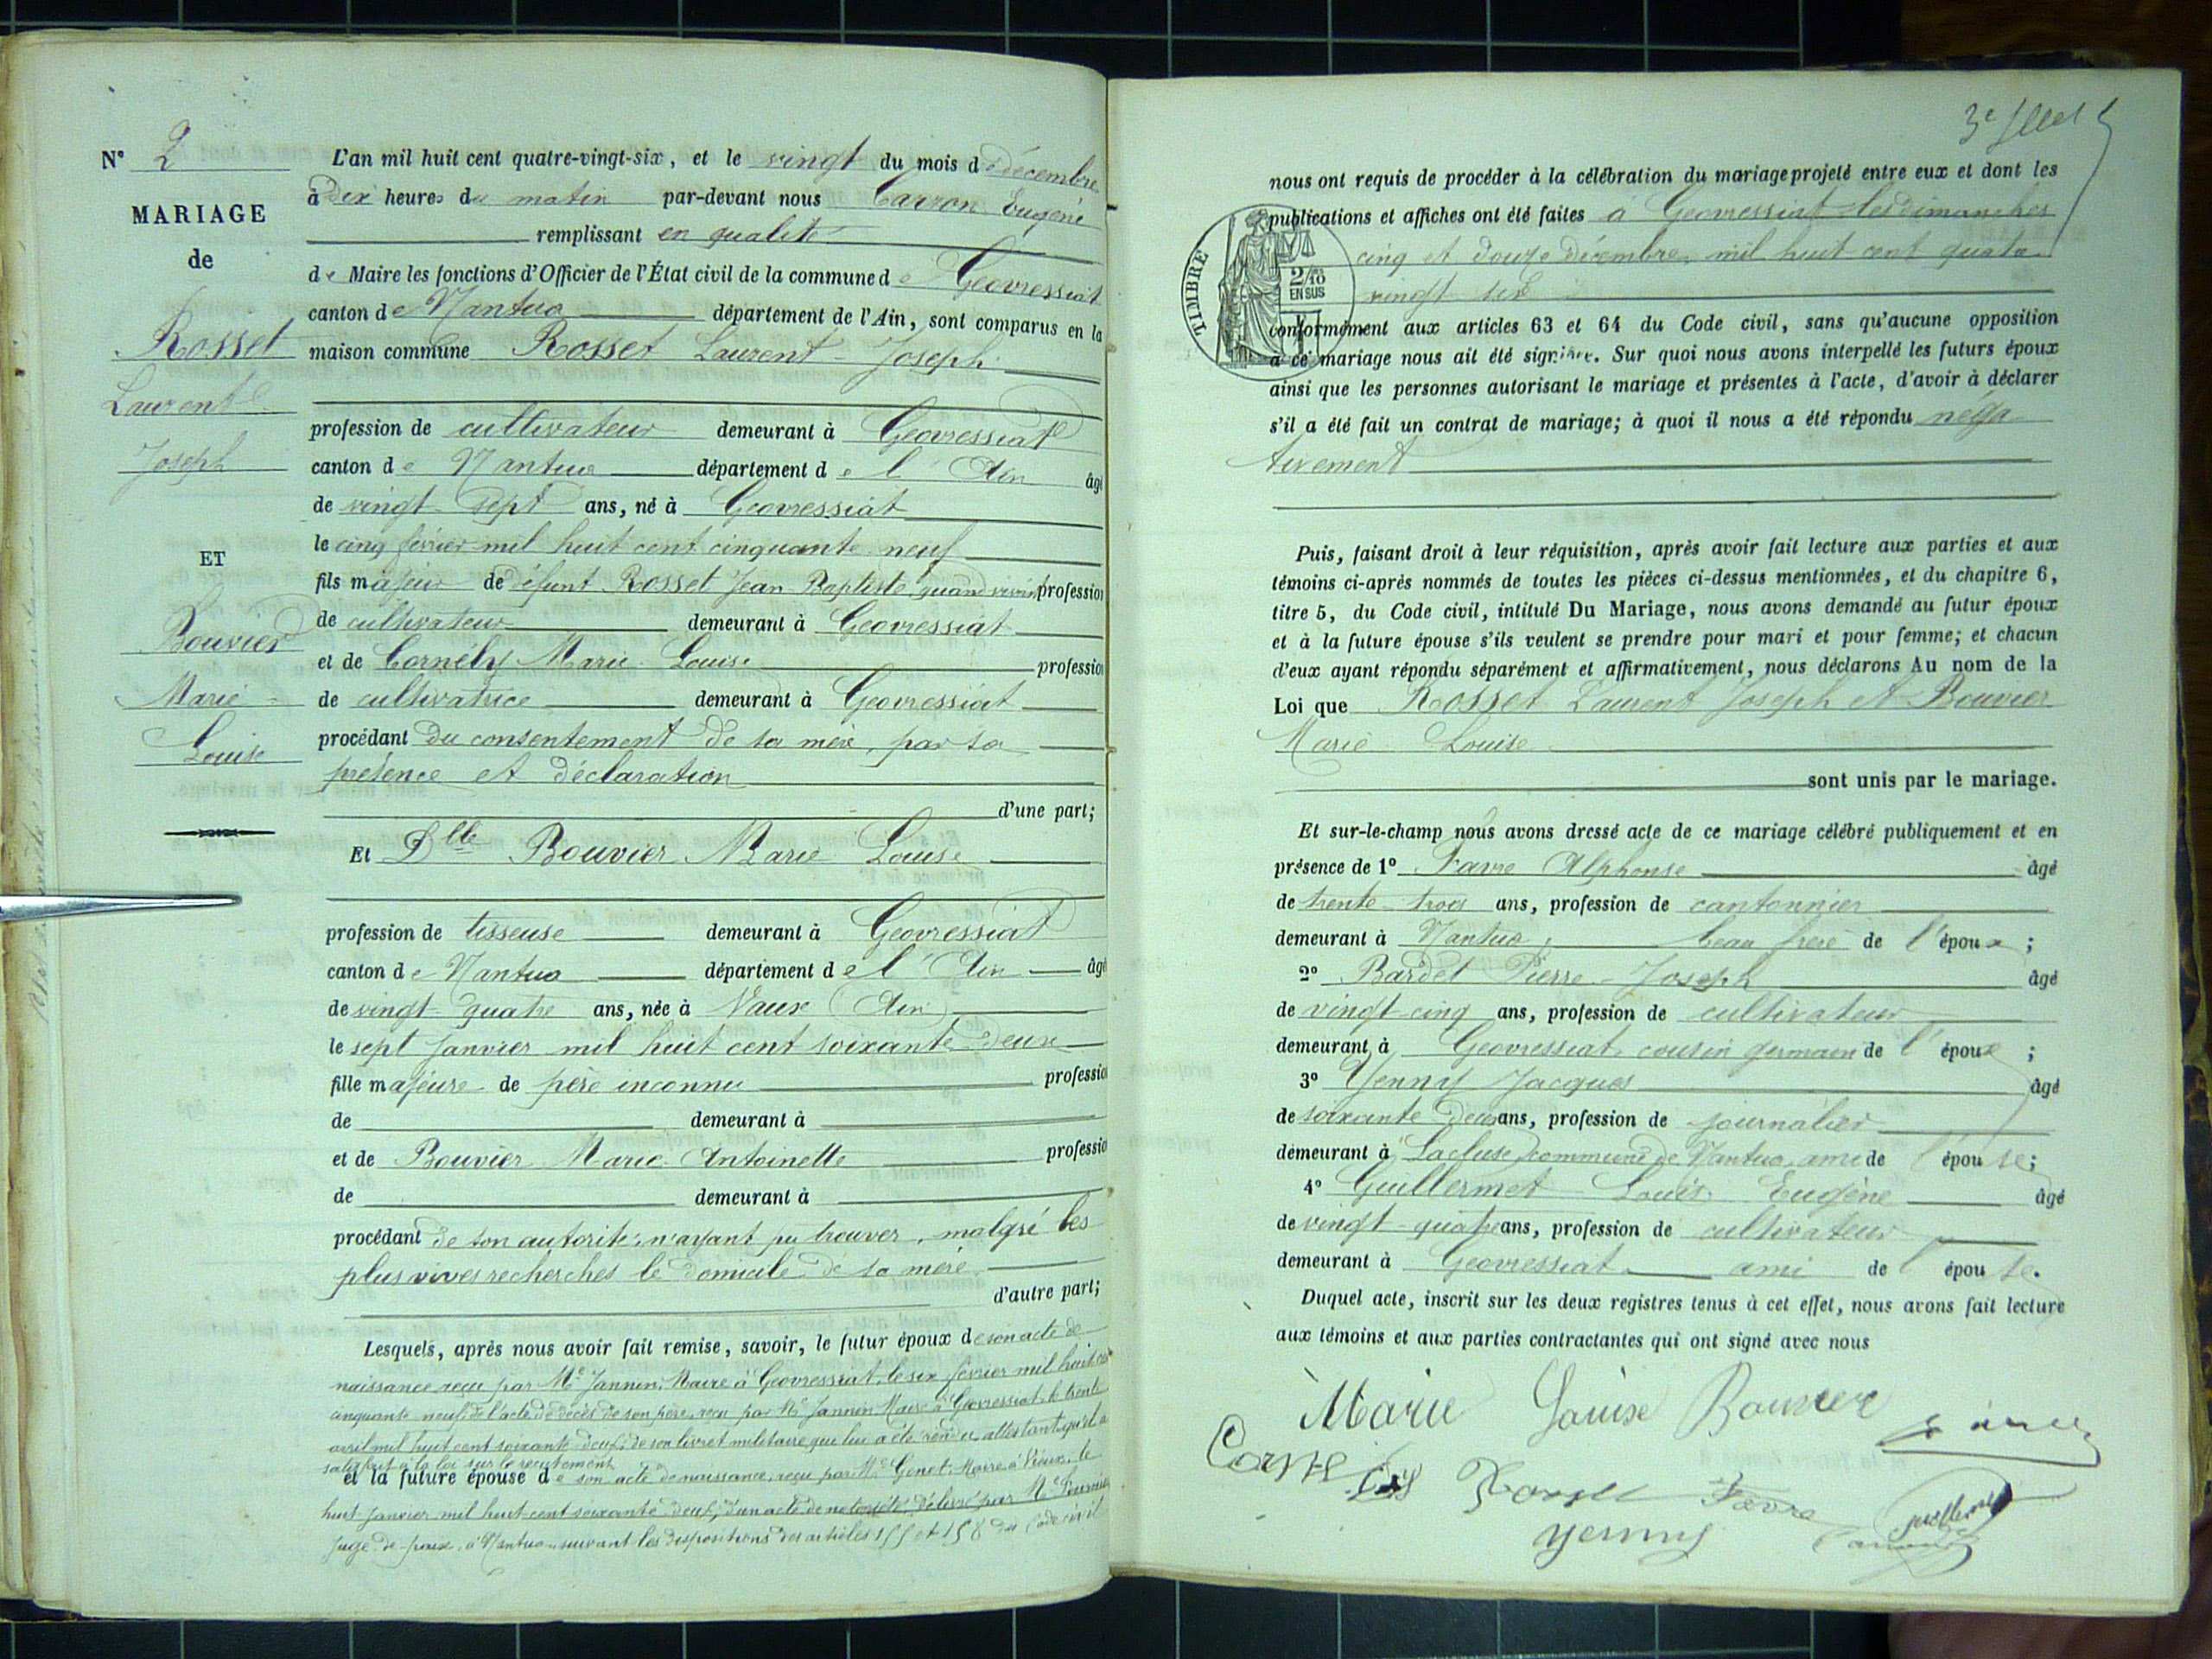 N° 2
MARIAGE
de
Rosset
Laurent
Joseph
ET
Bouvier
Marie
Louise
L'an mil huit cent quatre-vingt-six, et le vingt du mois de décembre
à dix heures du matin par-devant nous Carron Eugène
remplissant en qualité
de Maire les fonctions d'Officier de l'État civil de la commune de Géovressiat
canton de Nantua département de l'Ain, sont comparus en la
maison commune Rosset Laurent-Joseph
profession de cultivateur demeurant à Géovressiat
canton de Nantua département de l'Ain âgé
de vingt-sept ans, né à Géovressiat
le cinq février mil huit cent cinquante neuf
fils majeur de défunt Rosset Jean Baptiste quand vivait profession
de cultivateur demeurant à Géovressiat
et de Cornély Marie Louise profession
de cultivatrice demeurant à Géovressiat
procédant du consentement de sa mère, par sa
présence et déclaration
d'une part;
Et Dlle Bouvier Marie Louise
profession de tisseuse demeurant à Géovressiat
canton de Nantua département de l'Ain âgé
de vingt-quatre ans, née à Vaux (Ain)
le sept janvier mil huit cent soixante-deux
fille majeure de père inconnu profession
de demeurant à
et de Bouvier Marie Antoinette profession
de demeurant à
procédant de son autorité, n'ayant pu trouver, malgré les
plus vives recherches le domicile de sa mère
d'autre part;
Lesquels, après nous avoir fait remise, savoir, le futur époux de son acte de
naissance reçu par Me Jannin, Maire à Géovressiat, le six février mil huit cent
cinquante neuf, de l'acte de décès de son père, reçu par Me Jannin Maire à Géovressiat le trente
avril mil huit cent soixante deux, de son livret militaire que lui a été rendu attestant qu'il a
satisfait à la loi sur le recrutement
et la future épouse de son acte de naissance, reçu par Me Genet, Maire à Vaux, le
huit janvier mil huit cent soixante deux, d'un acte de notoriété délivré par Me
juge de paix, à Nantua suivant les dispositions des articles 155 et 158 du Code civil
3e
nous ont requis de procéder à la célébration du mariage projeté entre eux et dont les
publications et affiches ont été faites à Géovressiat les dimanches
cinq et douze décembre mil huit cent quatre
vingt six
TIMBRE
2/10
EN SUS
conformément aux articles 63 et 64 du Code civil, sans qu'aucune opposition
à ce mariage nous ait été signifiée. Sur quoi nous avons interpellé les futurs époux
ainsi que les personnes autorisant le mariage et présentes à l'acte, d'avoir à déclarer
s'il a été fait un contrat de mariage; à quoi il nous a été répondu néga
tivement
Puis, faisant droit à leur réquisition, après avoir fait lecture aux parties et aux
témoins ci-après nommés de toutes les pièces ci-dessus mentionnées, et du chapitre 6,
titre 5, du Code civil, intitulé Du Mariage, nous avons demandé au futur époux
et à la future épouse s'ils veulent se prendre pour mari et pour femme; et chacun
d'eux ayant répondu séparément et affirmativement, nous déclarons Au nom de la
Loi que Rosset Laurent Joseph et Bouvier
Marie Louise
sont unis par le mariage.
Et sur-le-champ nous avons dressé acte de ce mariage célébré publiquement et en
présence de 1° Favre Alphonse âgé
de trente-trois ans, profession de cantonnier
demeurant à Nantua, beau frère de l'époux;
2° Bardet Pierre-Joseph âgé
de vingt-cinq ans, profession de cultivateur
demeurant à Géovressiat, cousin germain de l'époux;
3° Yenny Jacques âgé
de soixante deux ans, profession de journalier
demeurant à Lacluse, commune de Nantua, ami de l'épouse;
4° Guillermet Louis Eugène âgé
de vingt-quatre ans, profession de cultivateur
demeurant à Géovressiat ami de l'épouse.
Duquel acte, inscrit sur les deux registres tenus à cet effet, nous avons fait lecture
aux témoins et aux parties contractantes qui ont signé avec nous
Marie Louise Bouvier
Cornély Rosset Favre Guillermet
yenny